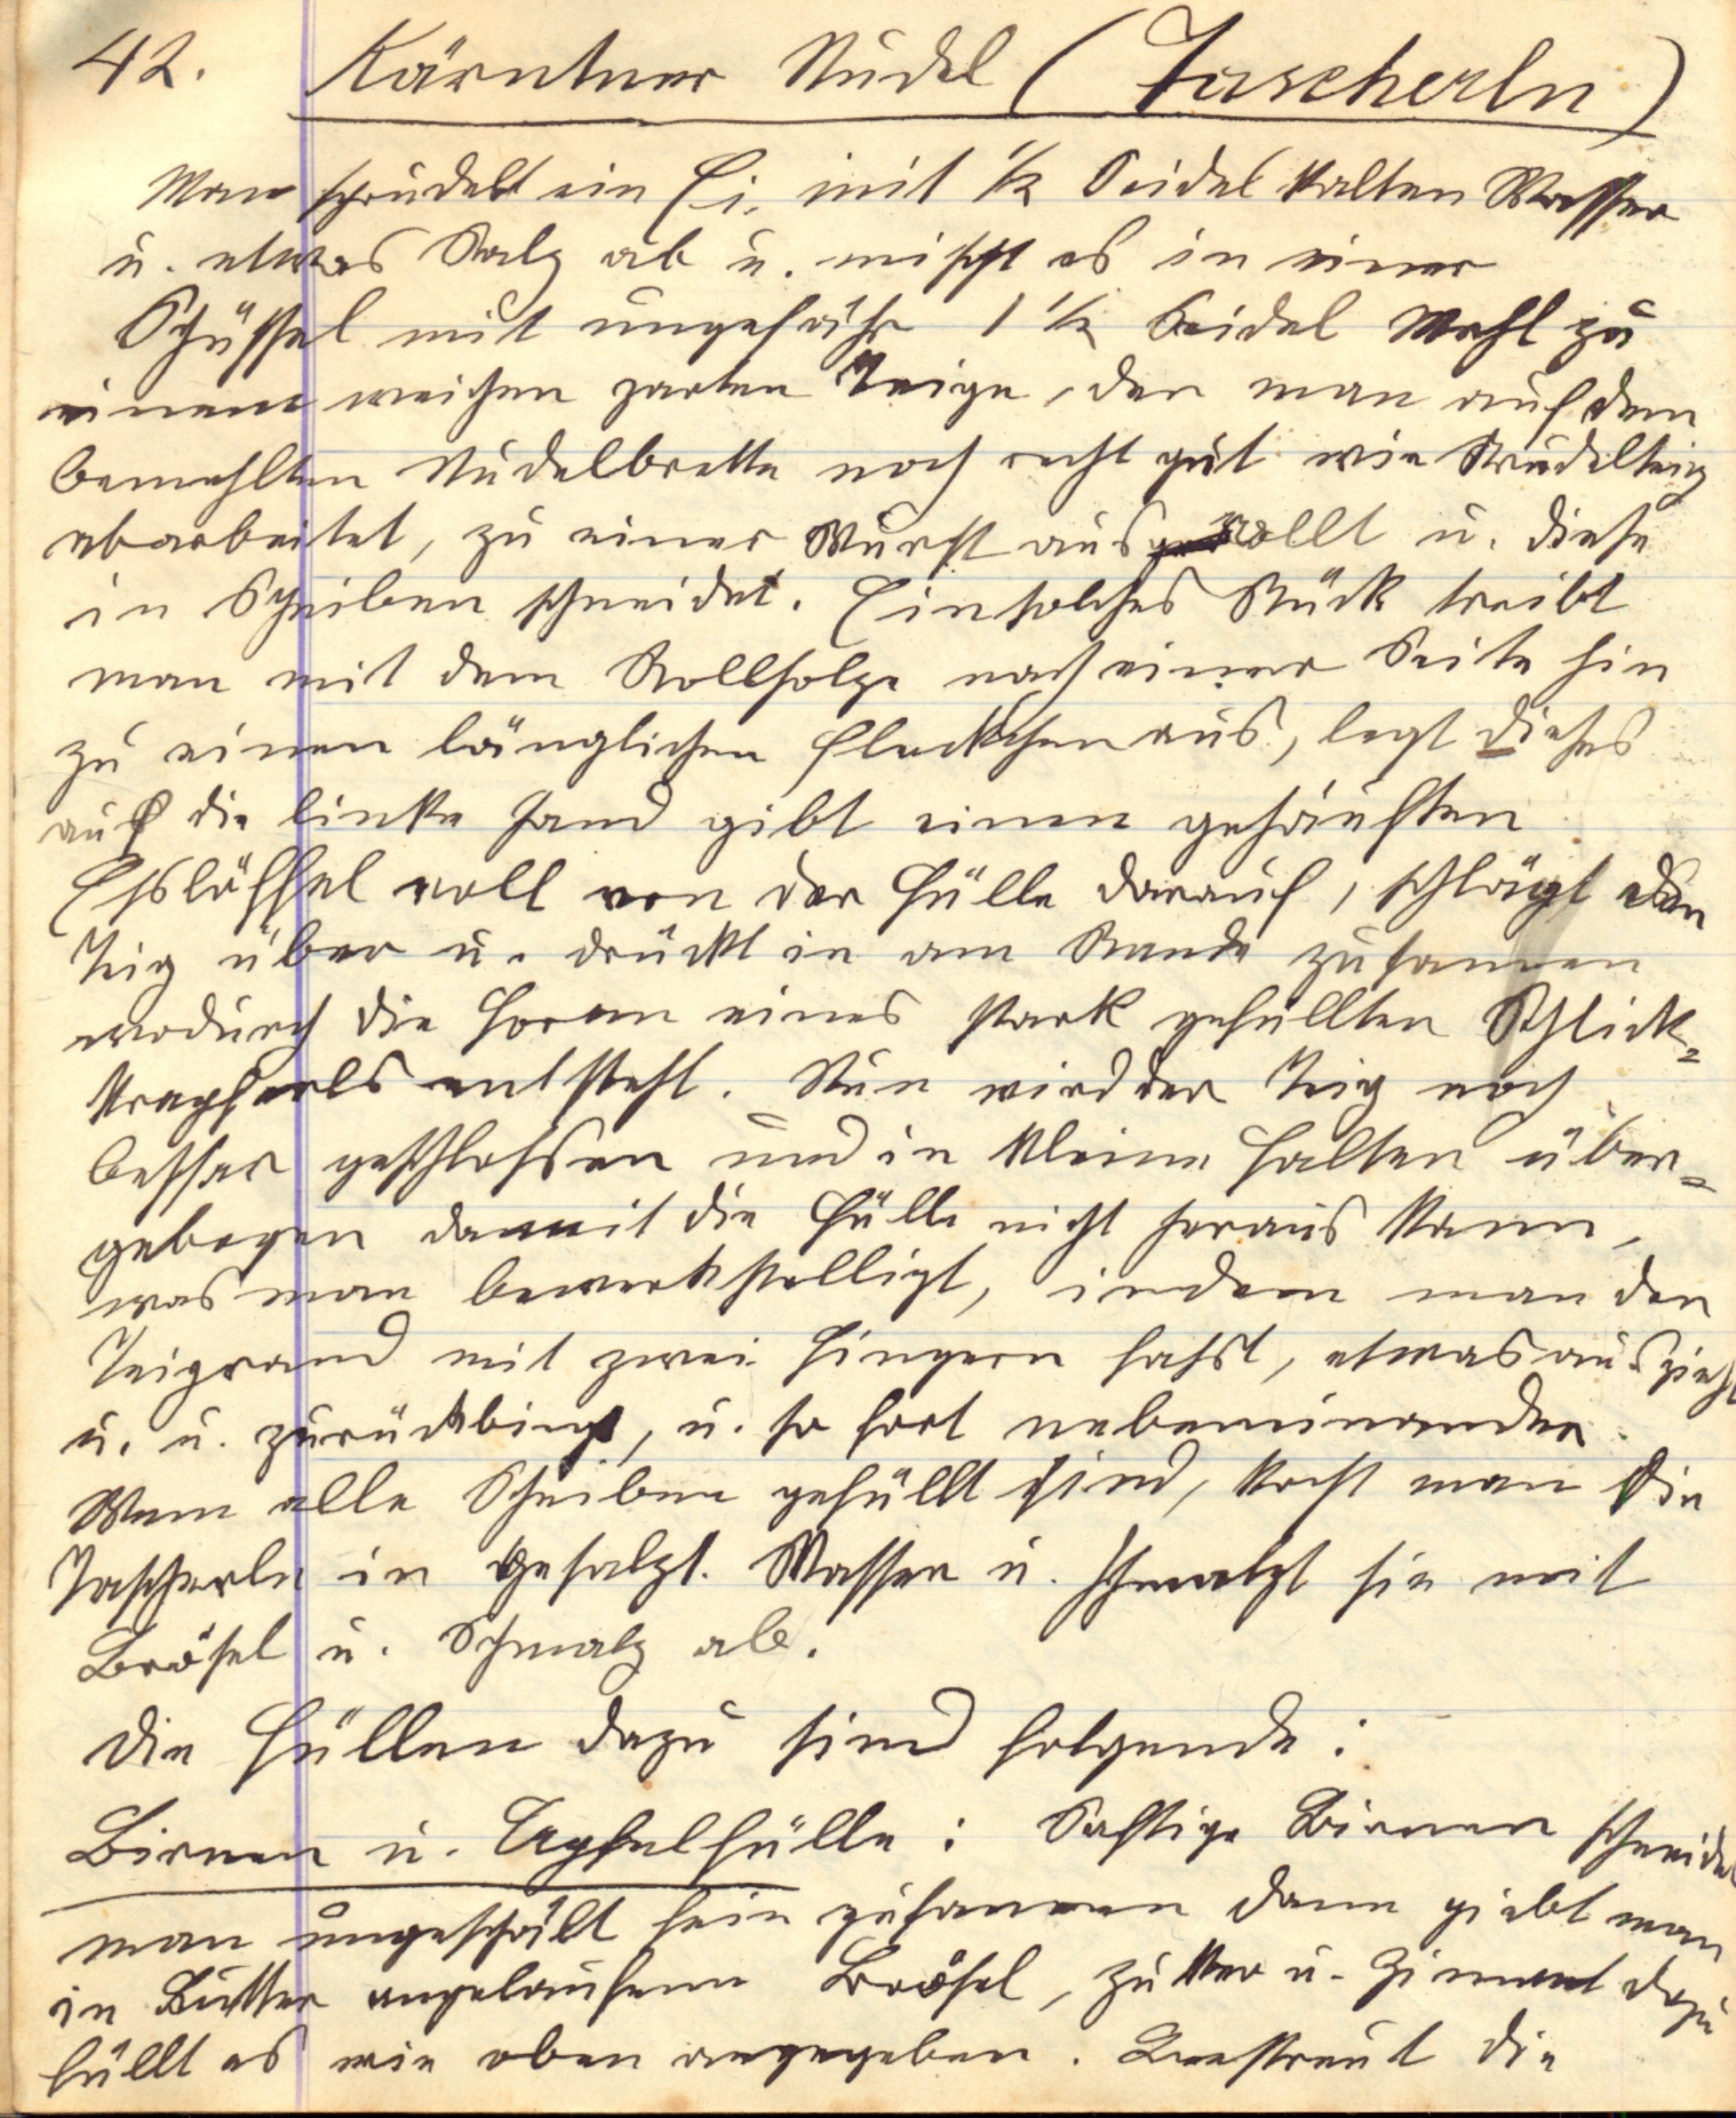 42. Kärntner Nudel (Tascherln)
Man sprudelt ein Ei mit ½ Seidel kalten Wasser
u. etwas Salz ab u. mischt es in einer
Schüssel mit ungefähr 1 ½ Seidel Mehl zu
einem weichen zarten Teige, den man auf dem
bemehlten Nudelbrette noch recht gut wie Strudelteig
abarbeitet, zu einer Wurst ausrollt u. diese
in Scheiben schneidet. Ein solches Stück treibt
man mit dem Rollholze nach einer Seite hin
zu einen länglichen Fleckchen aus, legt dieses
auf die linke Hand gibt einen gehäuften
Esslöffel voll von der Fülle darauf, schlägt den
Teig über u. drückt in am Rande zusammen
wodurch die Form eines stark gefüllten Schlick-
krapferls entsteht. Nun wird der Teig noch
besser geschlossen und in kleine Falten über-
gebogen damit die Fülle nicht heraus kann,
was man bewerkstelligt, indem man den
Teigrand mit zwei Fingern fasst, etwas auszieht
u. u. zurückbiegt, u. so fort nebeneinander.
Wenn alle Scheiben gefüllt sind, kocht man die
Tascherln in gesalzt. Wasser u. schmalzt sie mit
Brösel u. Schmalz ab.
Die Füllen dazu sind folgende:
Birnen u. Apfelfülle: Saftige Birnen schneidet
man ungeschält fein zusammen dann giebt man
in Butter angelaufene Brösel, Zucker u. Zimmt dazu
füllt es wie oben angegeben. Bestreut die